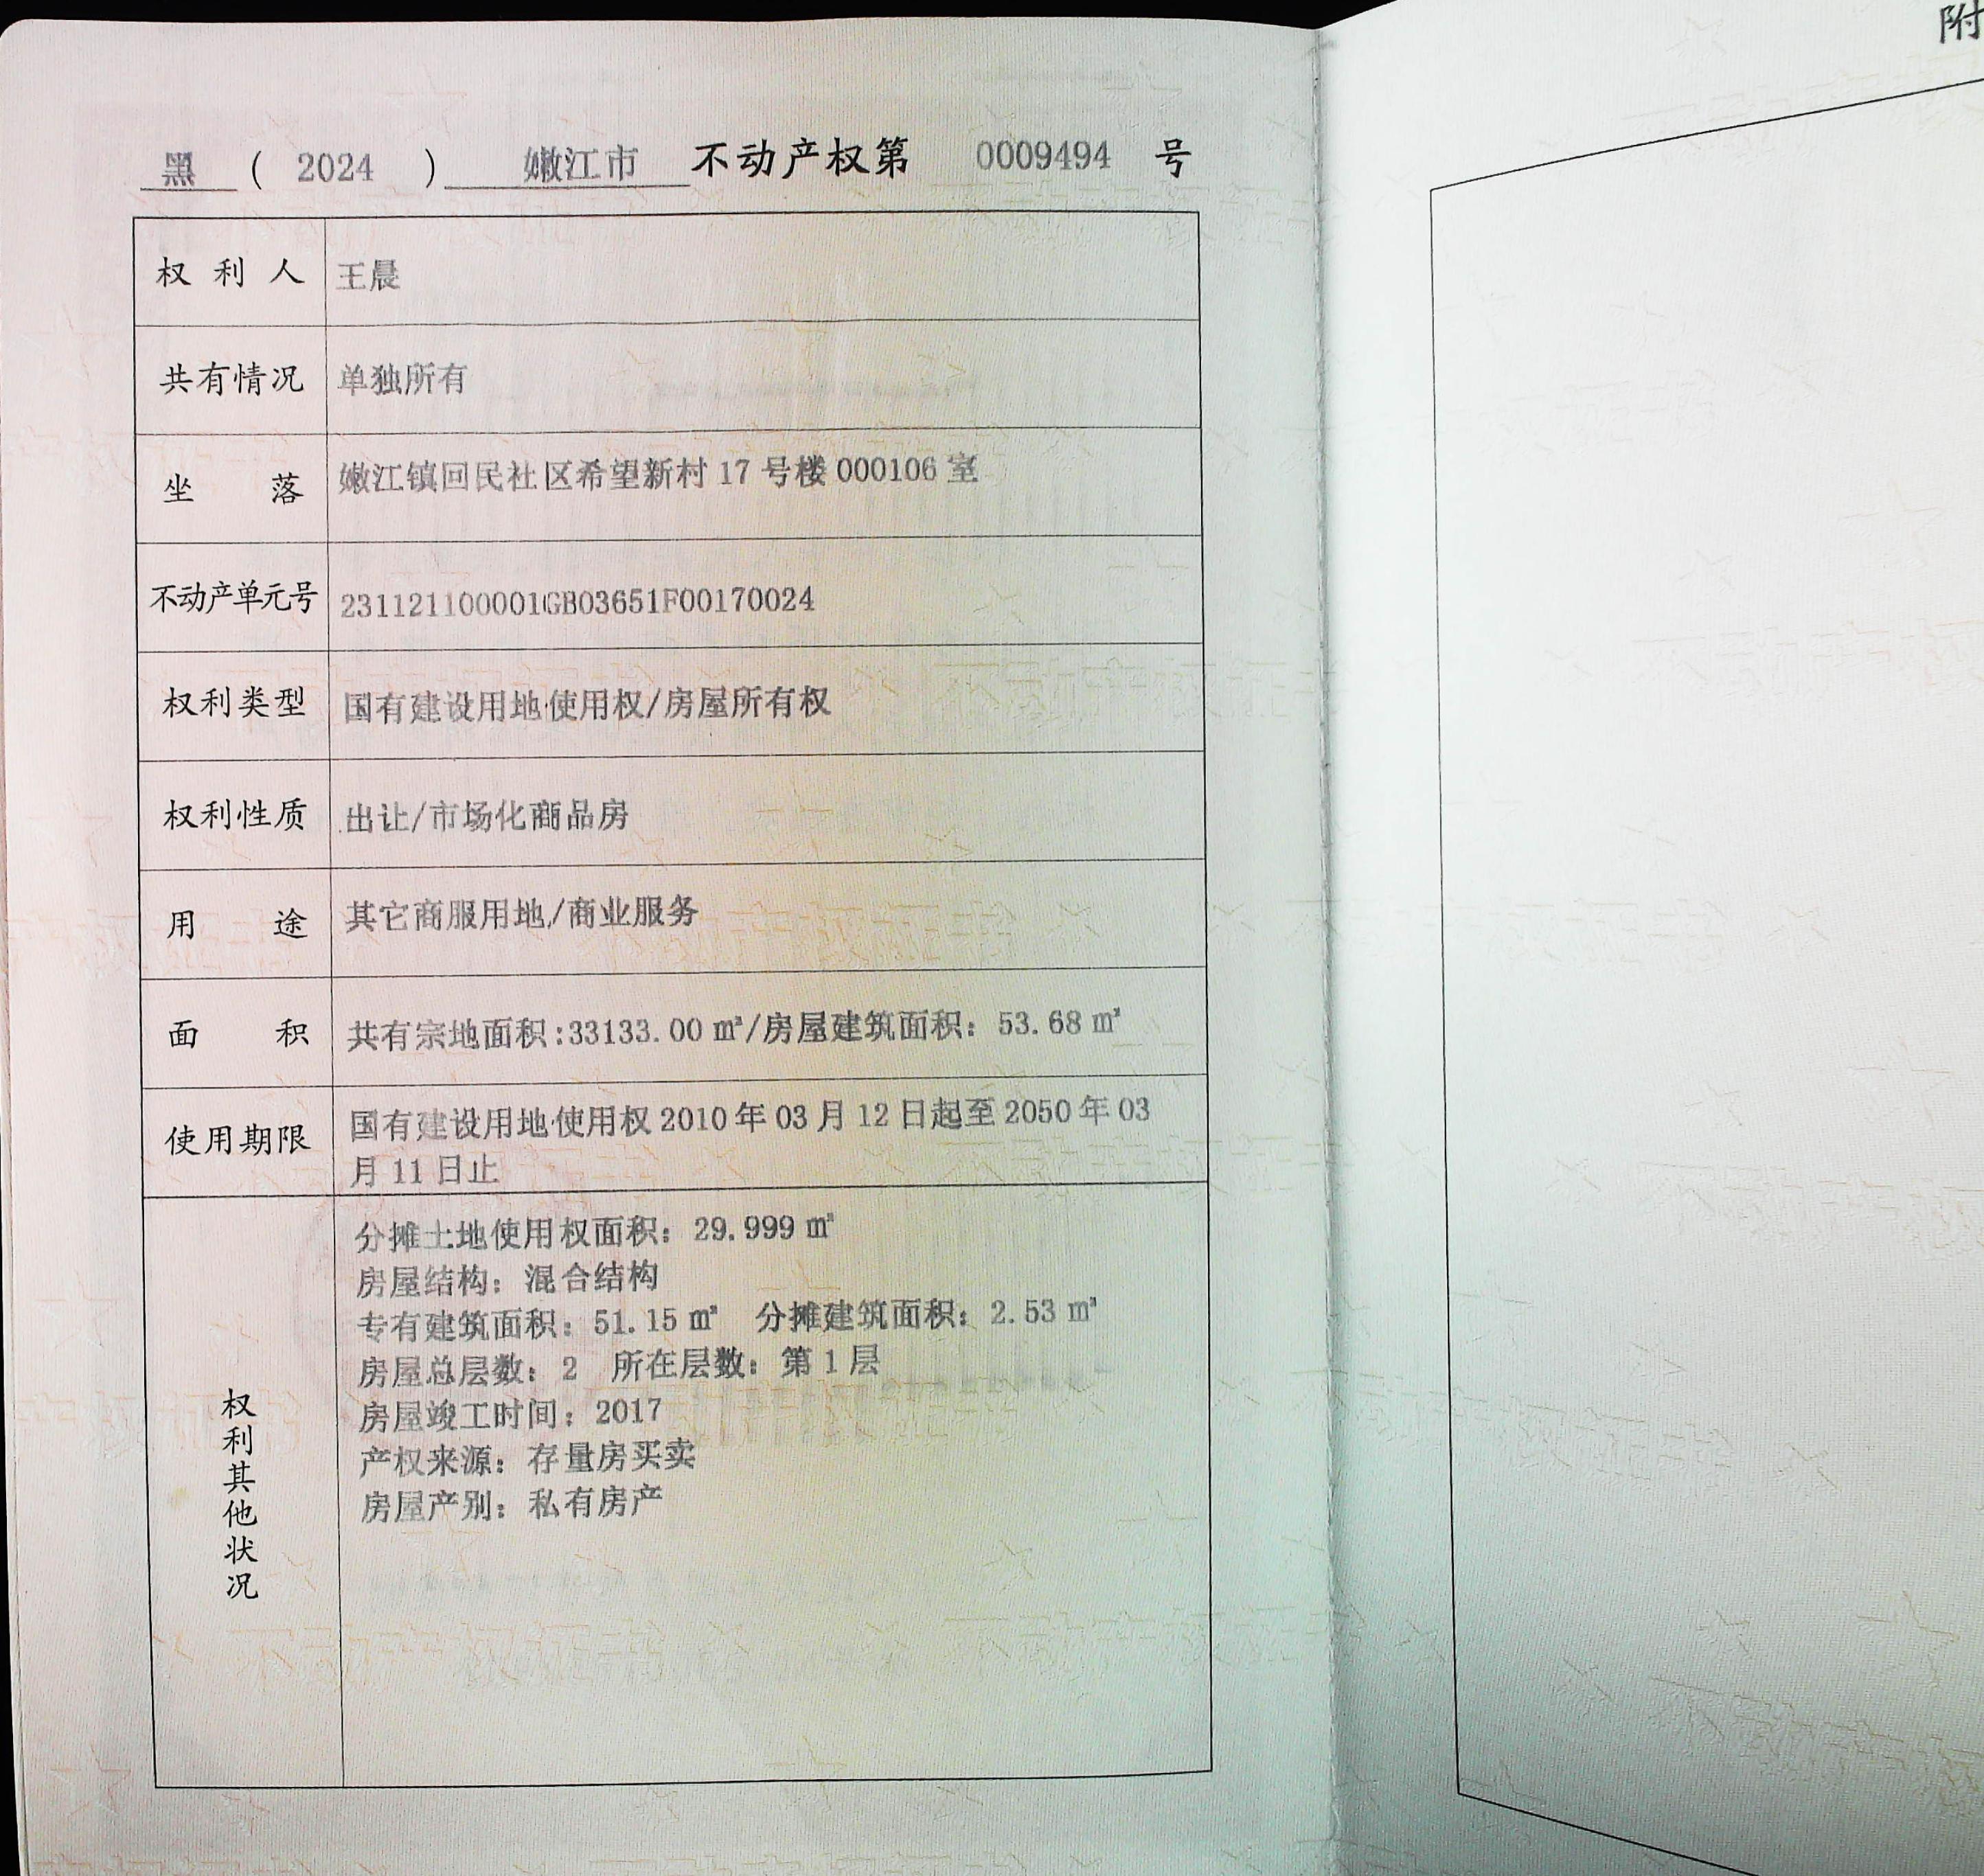 黑 ( 2024 ) 嫩江市 不动产权第 0009494 号
附
权利人 王晨
共有情况 单独所有
坐落 嫩江镇回民社区希望新村 17 号楼 000106 室
不动产单元号 231121100001GB03651F00170024
权利类型 国有建设用地使用权/房屋所有权
权利性质 出让/市场化商品房
用途 其它商服用地/商业服务
面积 共有宗地面积:33133.00 ㎡/房屋建筑面积：53.68 ㎡
使用期限 国有建设用地使用权 2010 年 03 月 12 日起至 2050 年 03
月 11 日止
权利其他状况
分摊土地使用权面积：29.999 ㎡
房屋结构：混合结构
专有建筑面积：51.15 ㎡ 分摊建筑面积：2.53 ㎡
房屋总层数：2 所在层数：第 1 层
房屋竣工时间：2017
产权来源：存量房买卖
房屋产别：私有房产